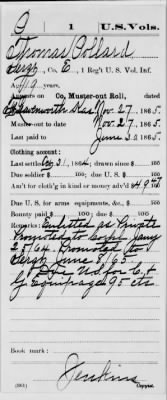 P 1 U.S. Vols.
Thomas Pollard
Sergt, Co. E, 1 Reg't U.S. Vol. Inf.
Age 19 years.
Appears on Co. Muster-out Roll, dated
Leavenworth Kas Nov 27, 1865.
Muster-out to date Nov 27, 1865.
Last paid to June 30, 1865.
Clothing account:
Last settled 31, 1864; drawn since $ 100
Due soldier $ 100; due U.S. $ 100
Am't for cloth'g in kind or money adv'd $ 100
Due U.S. for arms, equipments, &c., $ 100
Bounty paid $ 100; due $ 100
Remarks: Enlisted as Private
Promoted to Corpl Jany
25/64. Promoted to
Sergt June 8/65.
U.S. for C. &
G. Equipage 95 cts
Book mark:
Jenkins
Copyist.